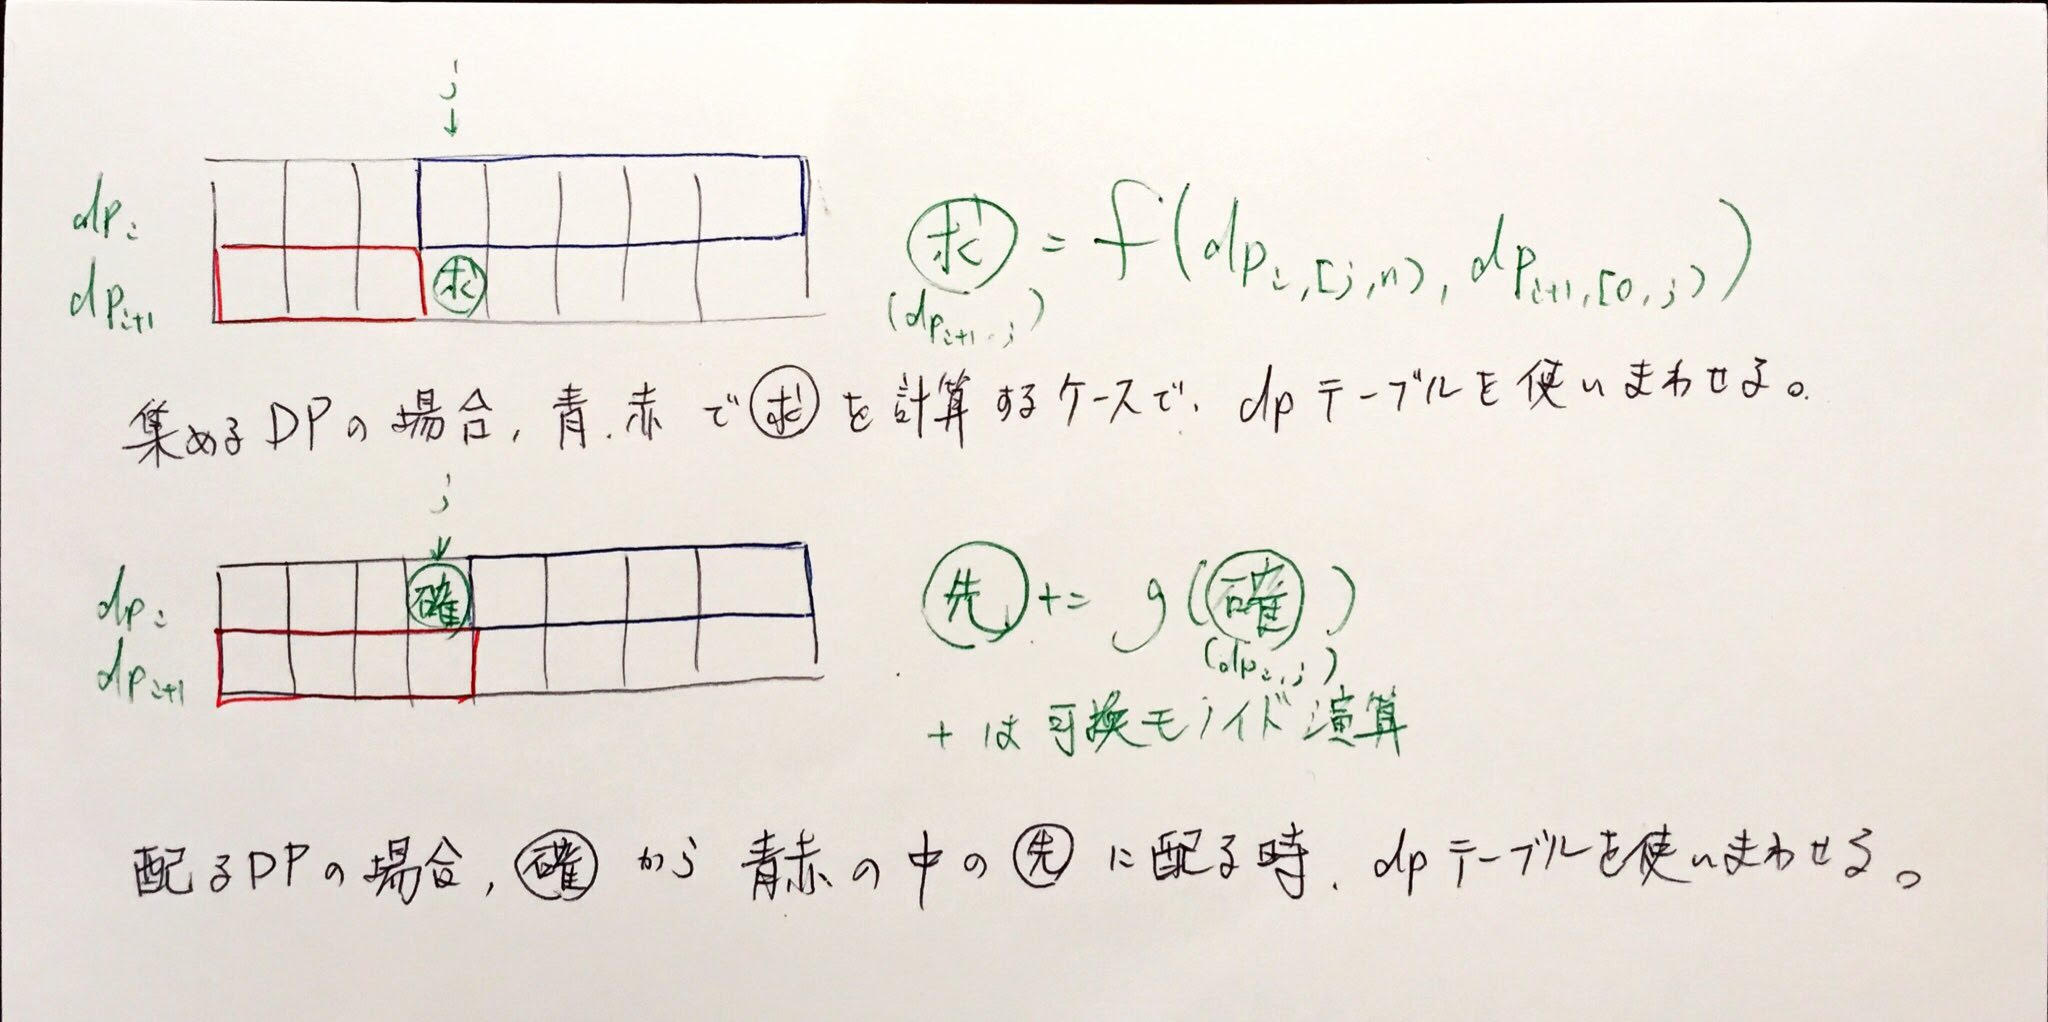 j
↓
dp i
dp i+1 求
求 = f(dp i,[j,n), dp i+1,[0,j))
(dp i+1,j)
集めるDPの場合,青.赤で求を計算するケースで、dpテーブルを使いまわせる。
j
↓
dp i 確
dp i+1
先 += g(確)
(dp i,j)
+は可換モノイド演算
配るDPの場合,確から青赤の中の先に配る時、dpテーブルを使いまわせる。